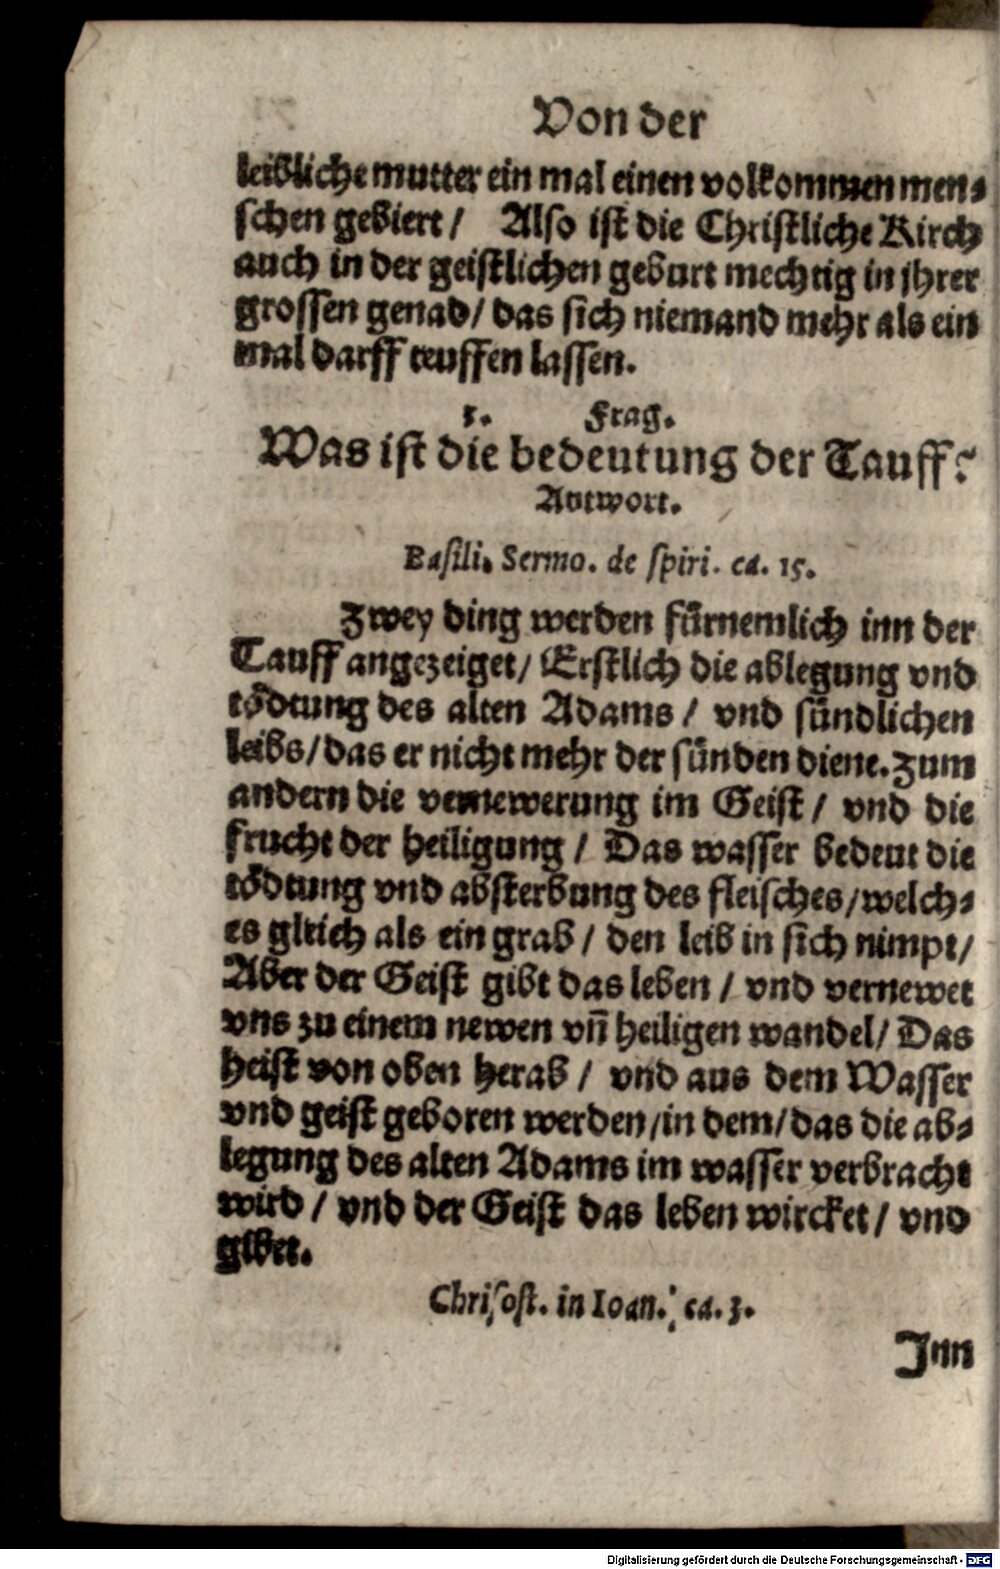 Von der
leibliche mutter ein mal einen volkommen men⸗
schen gebiert / Also ist die Christliche Kirch
auch in der geistlichen geburt mechtig in jhrer
grossen genad / das sich niemand mehr als ein
mal darff teuffen lassen.
3. Frag.
Was ist die bedeutung der Tauff?
Antwort.
Basili. Sermo. de spiri. ca. 15.
Zwey ding werden fürnemlich inn der
Tauff angezeiget / Erstlich die ablegung vnd
tödtung des alten Adams / vnd sündlichen
leibs / das er nicht mehr der sünden diene. Zum
andern die vernewerung im Geist / vnd die
frucht der heiligung / Das wasser bedeut die
tödtung vnd absterbung des fleisches / welch⸗
es gleich als ein grab / den leib in sich nimpt /
Aber der Geist gibt das leben / vnd vernewet
vns zu einem newen vñ heiligen wandel / Das
heist von oben herab / vnd aus dem Wasser
vnd geist geboren werden / in dem / das die ab⸗
legung des alten Adams im wasser verbracht
wird / vnd der Geist das leben wircket / vnd
gibet.
Chrisost. in Ioan. ca. 3.
Jnn
Digitalisierung gefördert durch die Deutsche Forschungsgemeinschaft - DFG